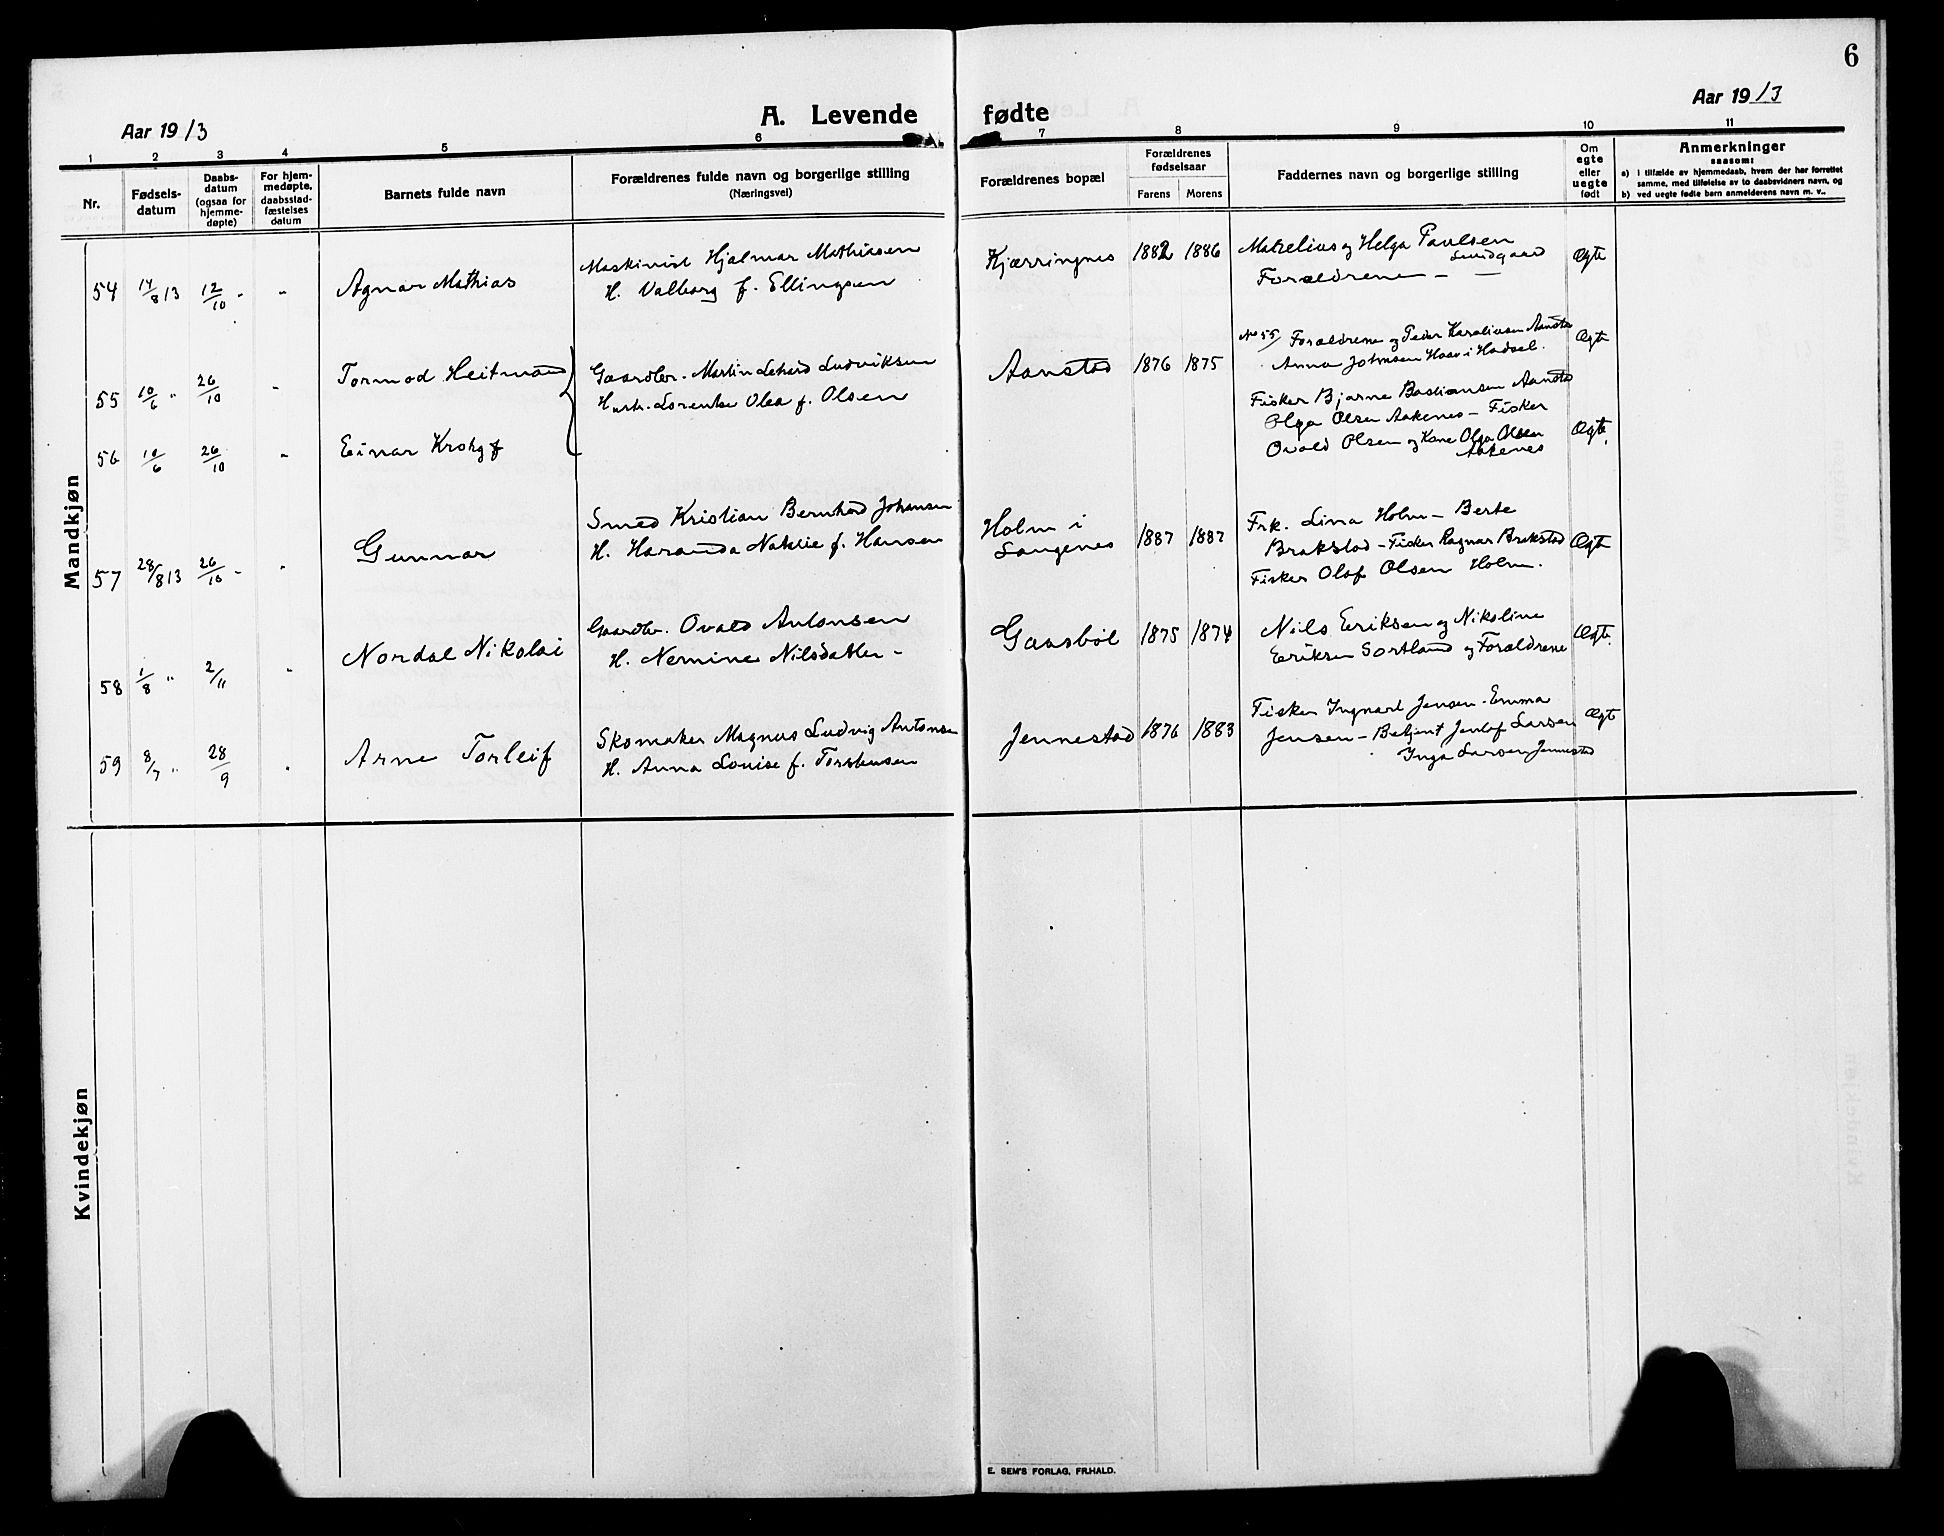 6
Aar 1913
A. Levende fødte
Aar 1913
1 2 3 4 5 6 7 8 9 10 11
Nr.
Fødsels-
datum
Daabs-
datum
(ogsaa for
hjemme-
døpte)
For hjem-
medøpte,
daabsstad-
fæstelses
datum
Barnets fulde navn
Forældrenes fulde navn og borgerlige stilling
(Næringsvei)
Forældrenes bopæl
Forældrenes
fødselsaar
Farens Morens
Faddernes navn og borgerlige stilling
Om
egte
eller
uegte
født
Anmerkninger
saasom:
a) i tilfælde av hjemmedaab, hvem der har forrettet
samme, med tilføielse av to daabsvidners navn, og
b) ved uegte fødte barn anmelderens navn m. v.
Mandkjøn
54 14/8 13 12/10 - - Agnar Mathias
Maskinist Hjalmar Mathiasen
H. Valborg f. Ellingsen
Kjærringnes 1882 1886
og Helga Paulsen
Forældrene — —
Ægte
55 10/6 " 26/10 - Tormod Heitmann
Gaardbr. Martin Ludviksen
Hustr. Lorentse Olea f. Olsen
Aanstad 1876 1875
No 55/ Forældrene og Peder Aanstad
Anna Johnsen Haav i Hadsel.
Ægte
56 10/6 26/10 - Einar Krohg
Fisker Bjarne Bastiansen Aanstad
Olga Olsen Aakenes - Fisker
Ovald Olsen og Kone Olga Olsen
Aakenes
Ægte
57 28/8 13 26/10 - - Gunnar
Smed Kristian Bernhard Johansen
H. Natalie f. Hansen
Holm i
Langenes
1887 1887
Frk. Lina Holm - Berte
Brokstad - Fisker Ragnar Brokstad
Fisker Olaf Olsen Holm.
Ægte
58 1/8 " 2/11 " Nordal Nikolai
Gaardbr. Ovald Antonsen
H. Nermine Nilsdatter -
Gaasbøl 1875 1874
Nils Eriksen og Nikoline
Eriksen Sortland og Forældrene
Ægte
59 8/7 " 28/9 Arne Torleif
Skomaker Magnus Ludvig Antonsen
H. Anna Louise f. Torstensen
Jennestad 1876 1883
Fisker Ingvart Jensen - Emma
Jensen - Betjent Larsen
Inga Larsen Jennestad
Ægte
Kvindekjøn
E. SEM'S FORLAG, FR.HALD.